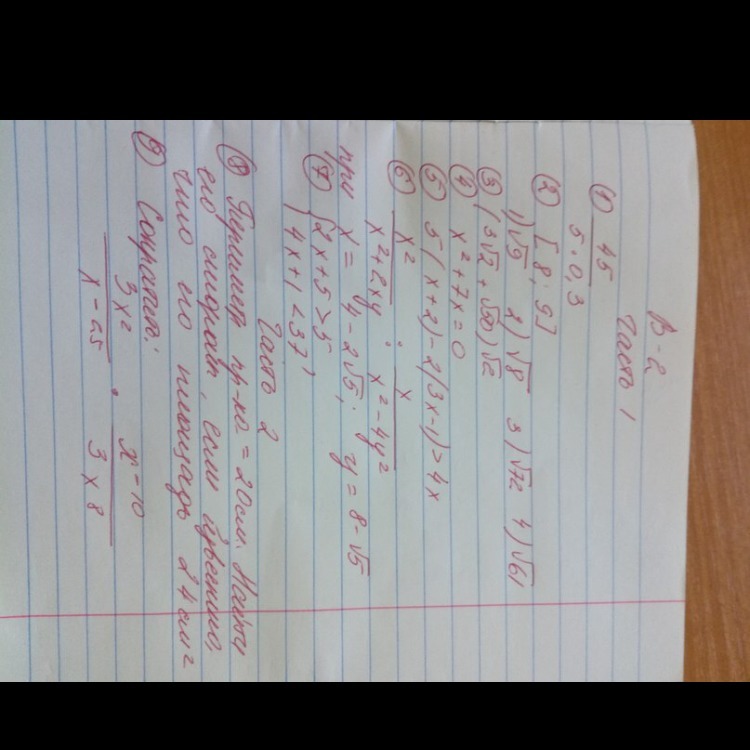 В-2
Часть 1
① 45 / 5·0,3
② [8; 9]
1) √9 2) √8 3) √72 4) √61
③ (3√2 + √50)√2
④ x² + 7x = 0
⑤ 5(x+2) - 2(3x-1) > 4x
⑥ x² / x²+2xy : x / x²-4y²
при x = 4 - 2√5; y = 8-√5
⑦ { 2x+5 > 5
4x+1 < 37,
Часть 2
⑧ Периметр пр-ка = 20см. Найти
его стороны, если известно,
что его площадь 24см²
⑨ Сократить:
3x² / x-25 · x-10 / 3x8